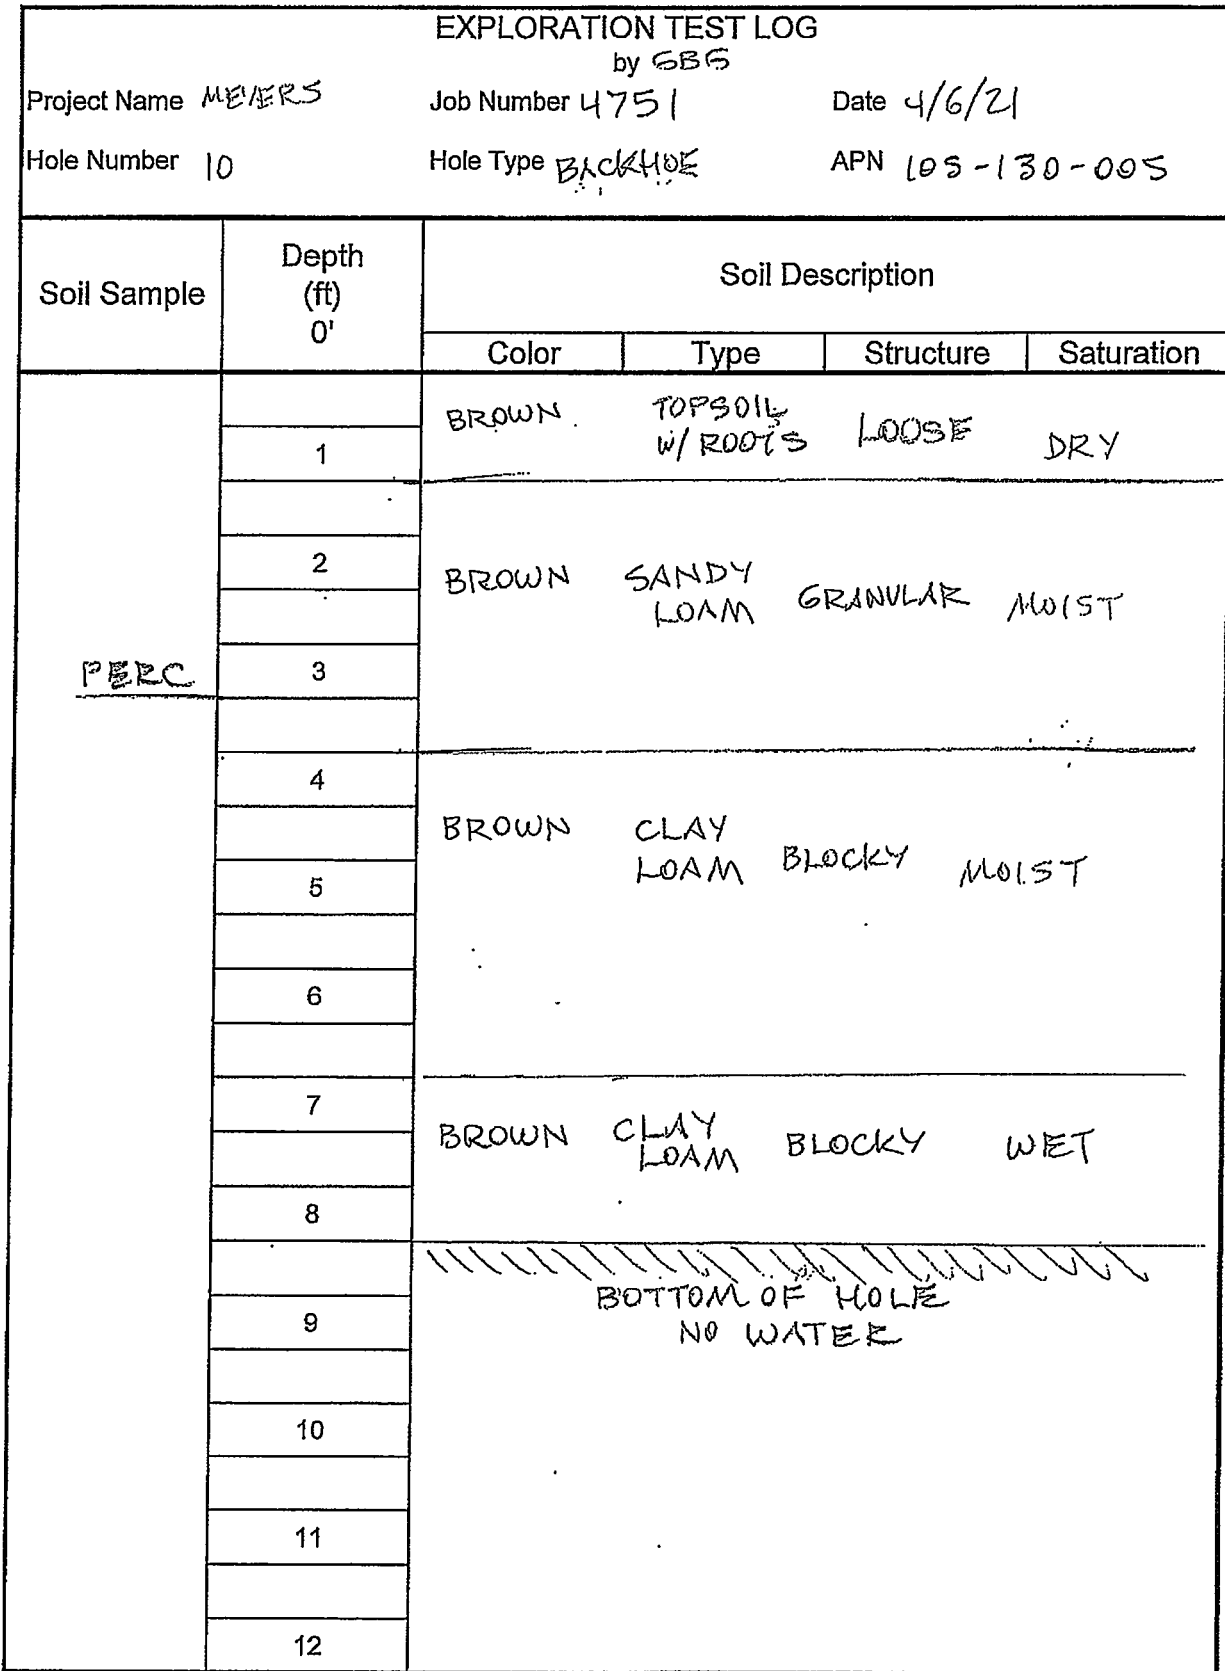 EXPLORATION TEST LOG
by GBG
Project Name MEIERS Job Number 4751 Date 4/6/21
Hole Number 10 Hole Type BACKHOE APN 105-130-005
Soil Sample
Depth
(ft)
0'
Soil Description
Color Type Structure Saturation
BROWN TOPSOIL
W/ ROOTS LOOSE DRY
1
2
BROWN SANDY
LOAM GRANULAR MOIST
PERC 3
4
BROWN CLAY
LOAM BLOCKY MOIST
5
6
7
BROWN CLAY
LOAM BLOCKY WET
8
BOTTOM OF HOLE
9
NO WATER
10
11
12